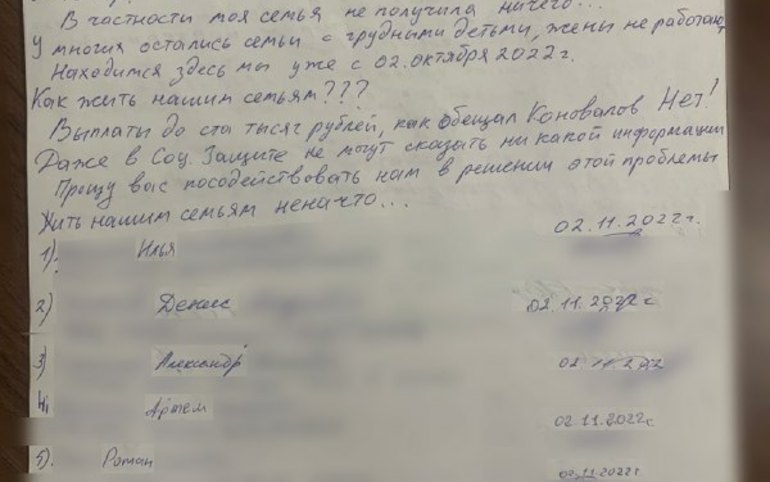 В частности моя семья не получила ничего...
У многих остались семьи с грудными детьми, жены не работают,
Находимся здесь мы уже с 02.октября 2022г.
Как жить нашим семьям???
Выплаты до ста тысяч рублей, как обещал Коновалов Нет!
Даже в Соц. Защите не могут сказать ни какой информации
Прошу вас посодействовать нам в решении этой проблемы
Жить нашим семьям неначто...
02.11.2022г.
1). Илья
2) Денис 02.11.2022г
3) Александр 02.11.2022
4, Артем 02.11.2022г.
5). Роман 02.11.2022г